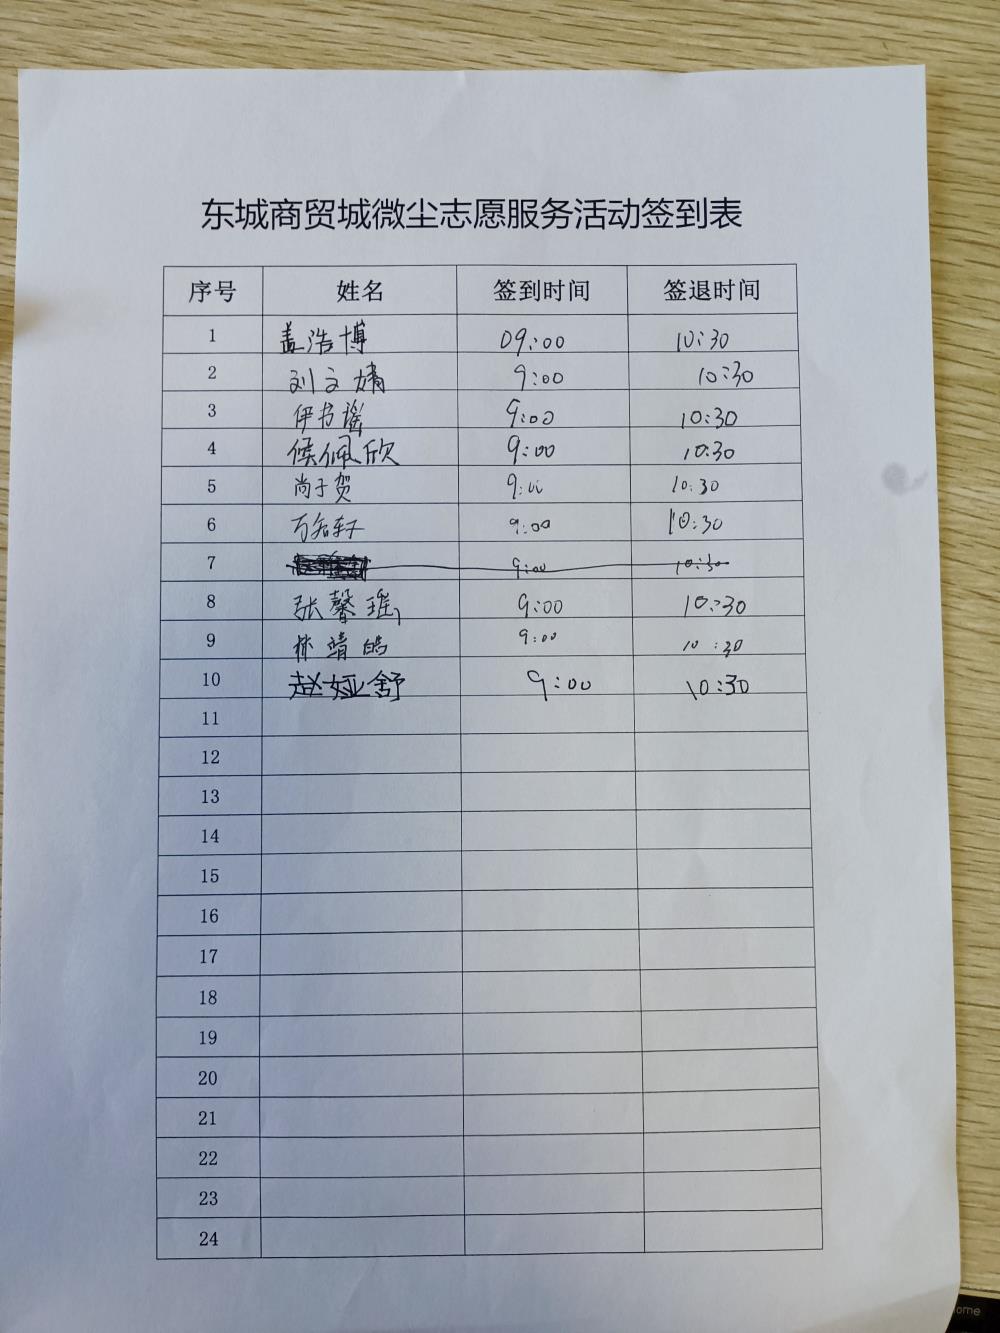 东城商贸城微尘志愿服务活动签到表
序号 姓名 签到时间 签退时间
1 盖浩博 09:00 10:30
2 刘文婧 9:00 10:30
3 伊书谣 9:00 10:30
4 侯佩欣 9:00 10:30
5 尚于贺 9:00 10:30
6 9:00 10:30
7 9:00 10:30
8 张馨瑶 9:00 10:30
9 林靖皓 9:00 10:30
10 赵娅舒 9:00 10:30
11
12
13
14
15
16
17
18
19
20
21
22
23
24